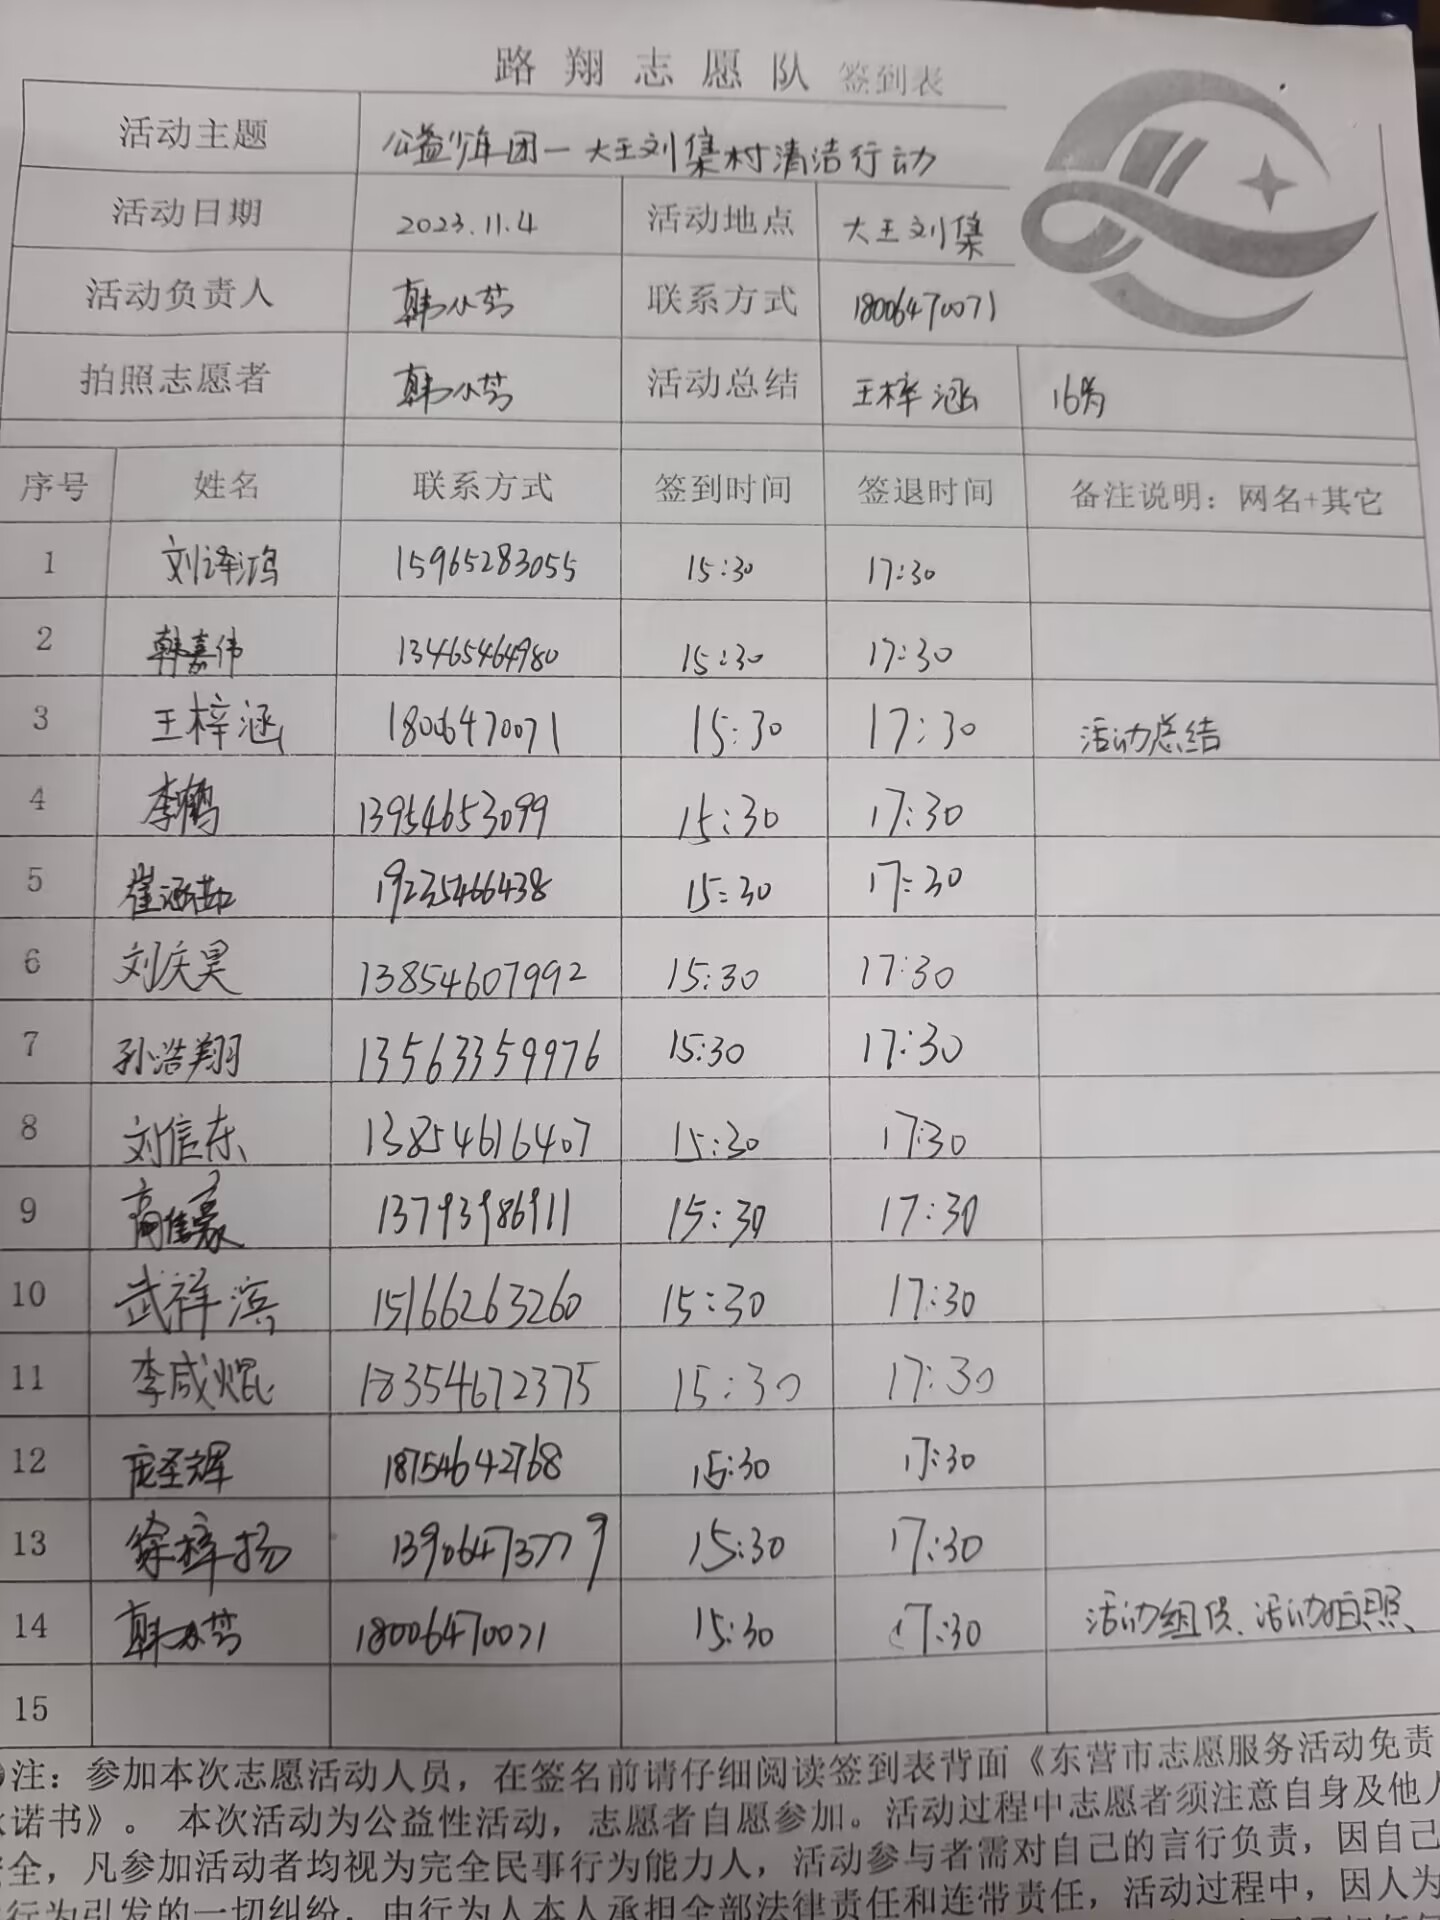 路翔志愿队 签到表
活动主题 公益少年团一大王刘集村清洁行动
活动日期 2023.11.4 活动地点 大王刘集
活动负责人 韩小芳 联系方式 18006470071
拍照志愿者 韩小芳 活动总结 王梓涵 16岁
序号 姓名 联系方式 签到时间 签退时间 备注说明：网名+其它
1 刘译鸿 15965283055 15:30 17:30
2 韩嘉伟 13465464980 15:30 17:30
3 王梓涵 18006470071 15:30 17:30 活动总结
4 李鹤 13954653099 15:30 17:30
5 崔涵茹 19235466438 15:30 17:30
6 刘庆昊 13854607992 15:30 17:30
7 孙浩翔 13563359976 15:30 17:30
8 刘信东 13854616407 15:30 17:30
9 商佳豪 13793986911 15:30 17:30
10 武祥滨 15166263260 15:30 17:30
11 李咸焜 18354672375 15:30 17:30
12 庞圣辉 18754642768 15:30 17:30
13 徐梓扬 13906473779 15:30 17:30
14 韩小芳 18006470071 15:30 17:30 活动组织、活动拍照
15
注：参加本次志愿活动人员，在签名前请仔细阅读签到表背面《东营市志愿服务活动免责
承诺书》。 本次活动为公益性活动，志愿者自愿参加。活动过程中志愿者须注意自身及他人
安全，凡参加活动者均视为完全民事行为能力人，活动参与者需对自己的言行负责，因自己
行为引发的一切纠纷，由行为人本人承担全部法律责任和连带责任，活动过程中，因人为